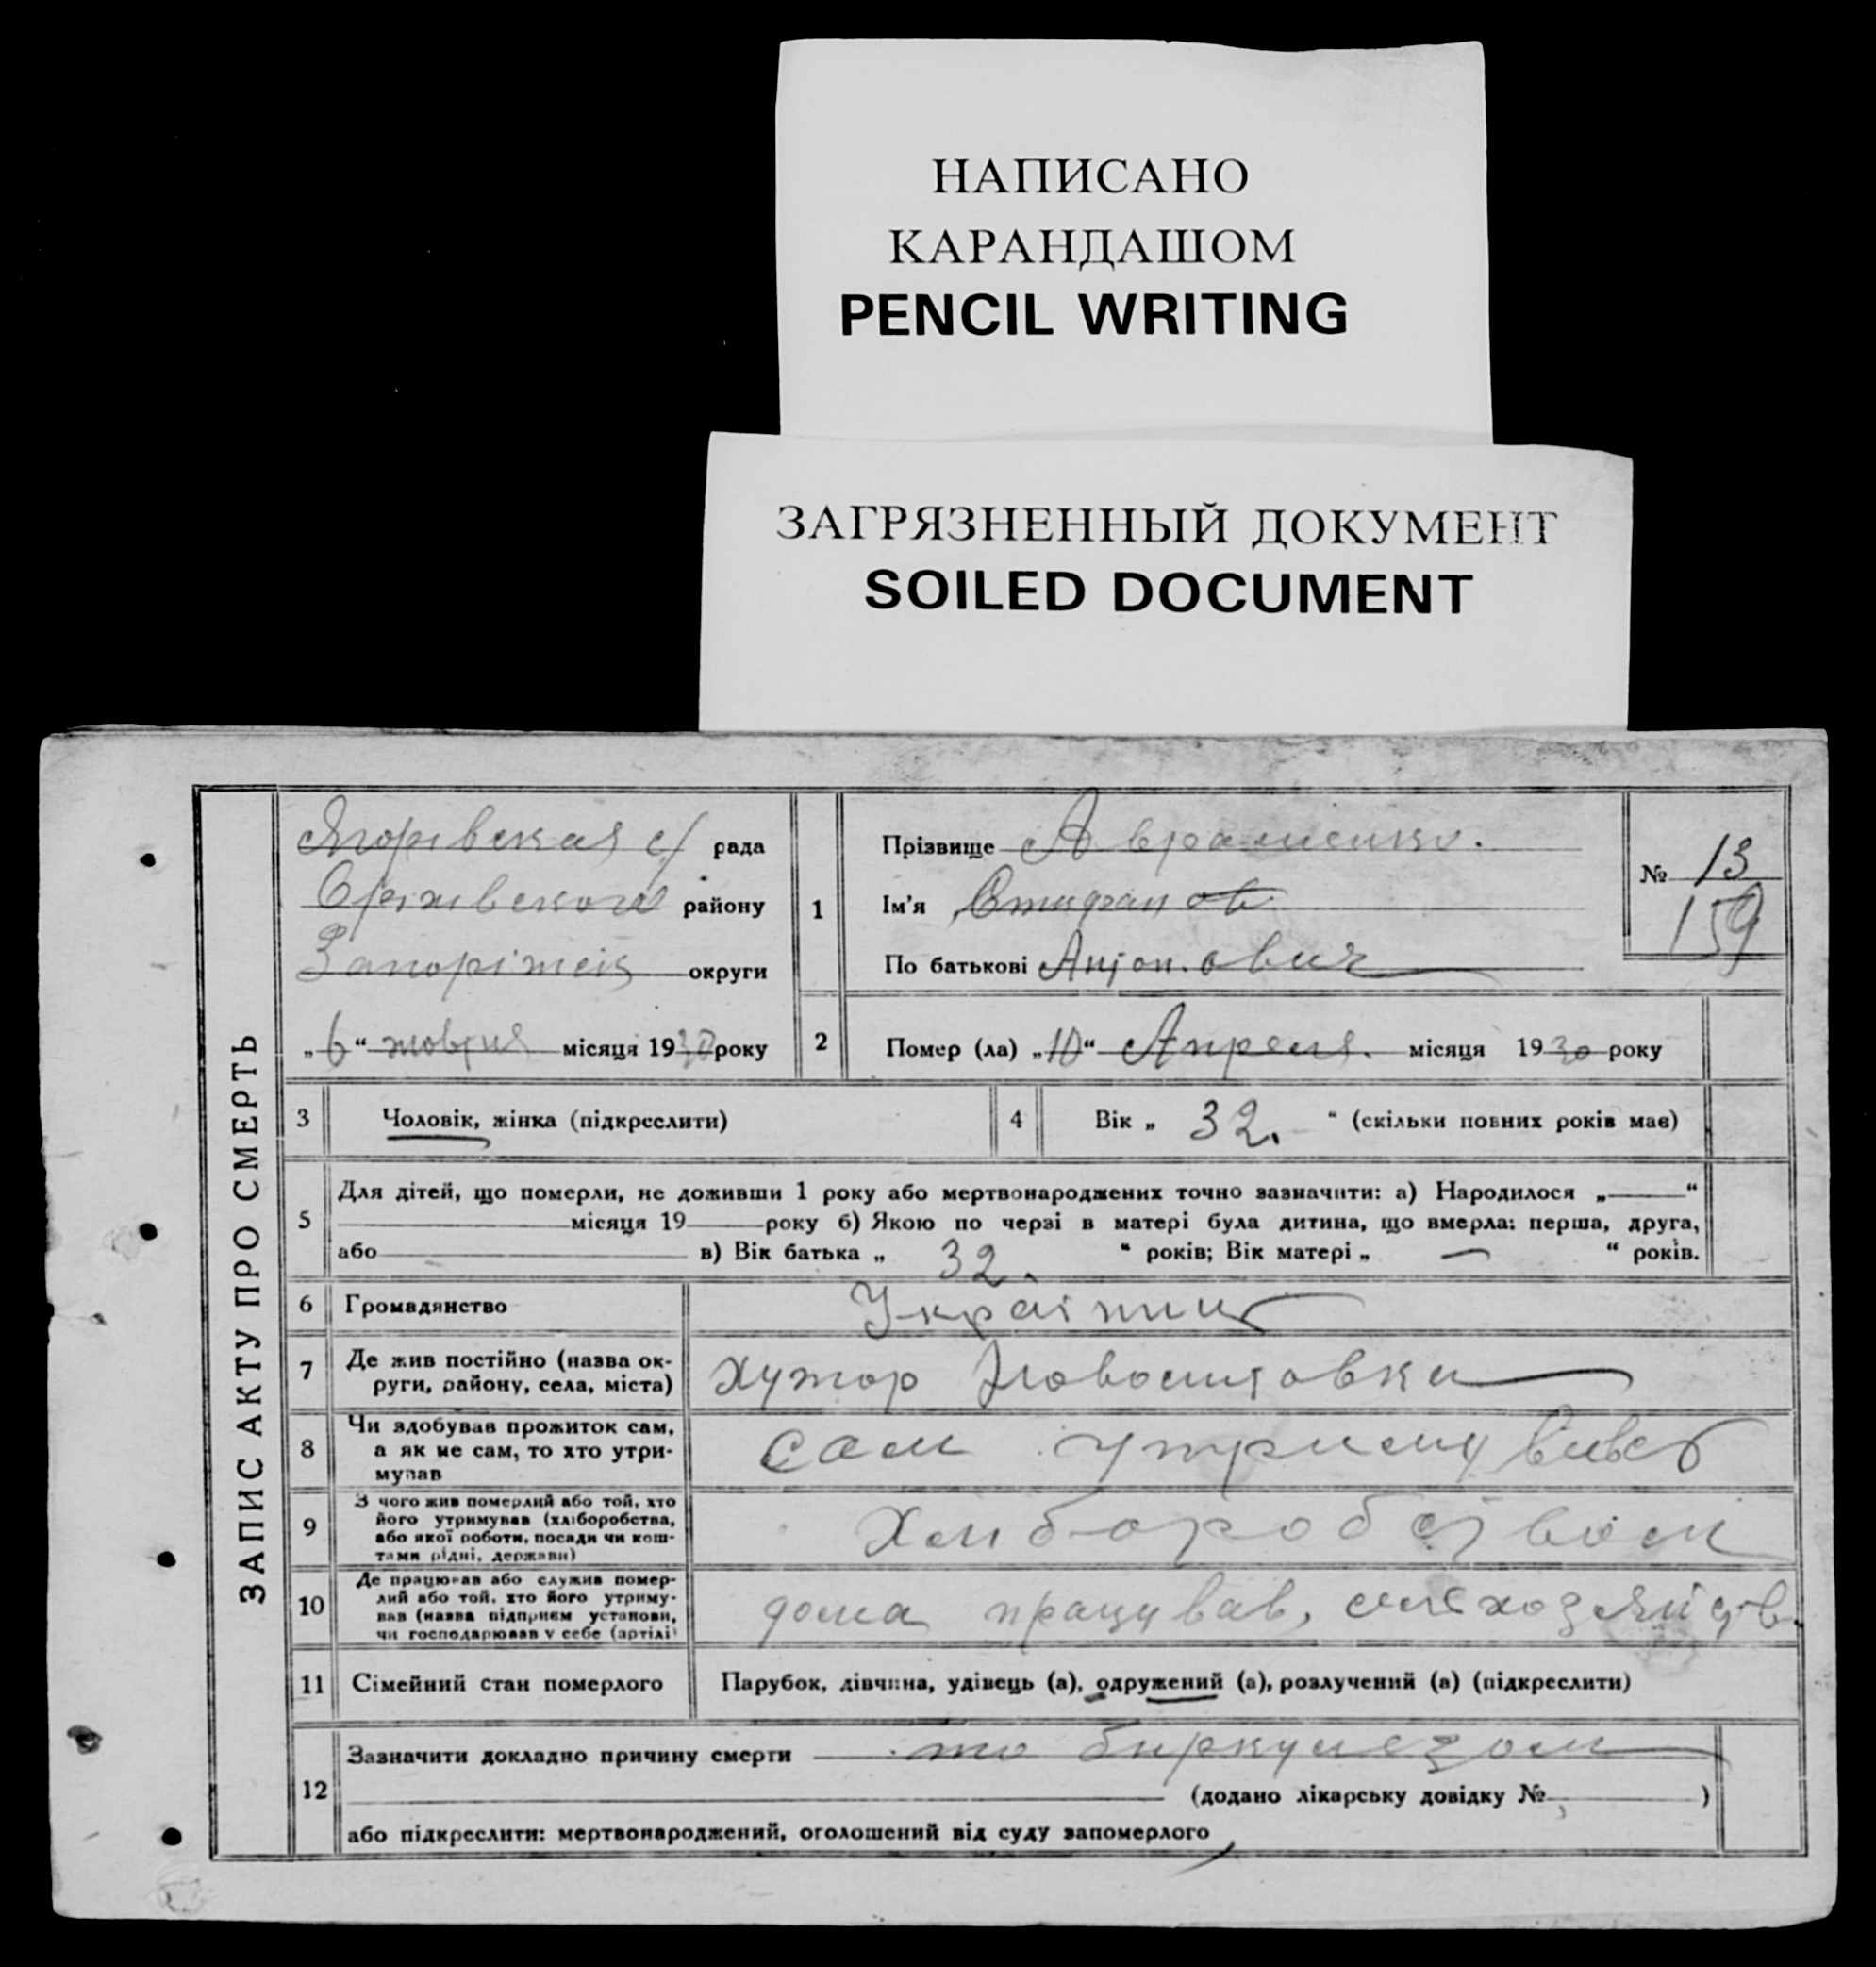 НАПИСАНО
КАРАНДАШОМ
PENCIL WRITING
ЗАГРЯЗНЕННЫЙ ДОКУМЕНТ
SOILED DOCUMENT
ЗАПИС АКТУ ПРО СМЕРТЬ
с/ рада
району
округи
„6“ жовтня місяця 1930 року
1
Прізвище Авраменко.
Ім'я
По батькові Антонович
№ 13
159
2
Помер (ла) „10“ Апреля. місяця 1930 року
3
Чоловік, жінка (підкреслити)
4
Вік „ 32. “ (скільки повних років має)
5
Для дітей, що померли, не доживши 1 року або мертвонароджених точно зазначити: а) Народилося „ “
місяця 19 року б) Якою по черзі в матері була дитина, що вмерла: перша, друга,
або в) Вік батька „ 32. “ років; Вік матері „ — “ років.
6
Громадянство
7
Де жив постійно (назва ок-
руги, району, села, міста)
хутор
8
Чи здобував прожиток сам,
а як не сам, то хто утри-
мував
сам
9
З чого жив померлий або той, хто
його утримував (хліборобства,
або якої роботи, посади чи кош-
тами рідні, держави)
10
Де працював або служив помер-
лий або той, хто його утриму-
вав (назва підприєм установи,
чи господарював у себе (артілі)
дома працував,
11
Сімейний стан померлого
Парубок, дівчина, удівець (а), одружений (а), розлучений (а) (підкреслити)
12
Зазначити докладно причину смерти то биркулезом
(додано лікарську довідку № )
або підкреслити: мертвонароджений, оголошений від суду запомерлого